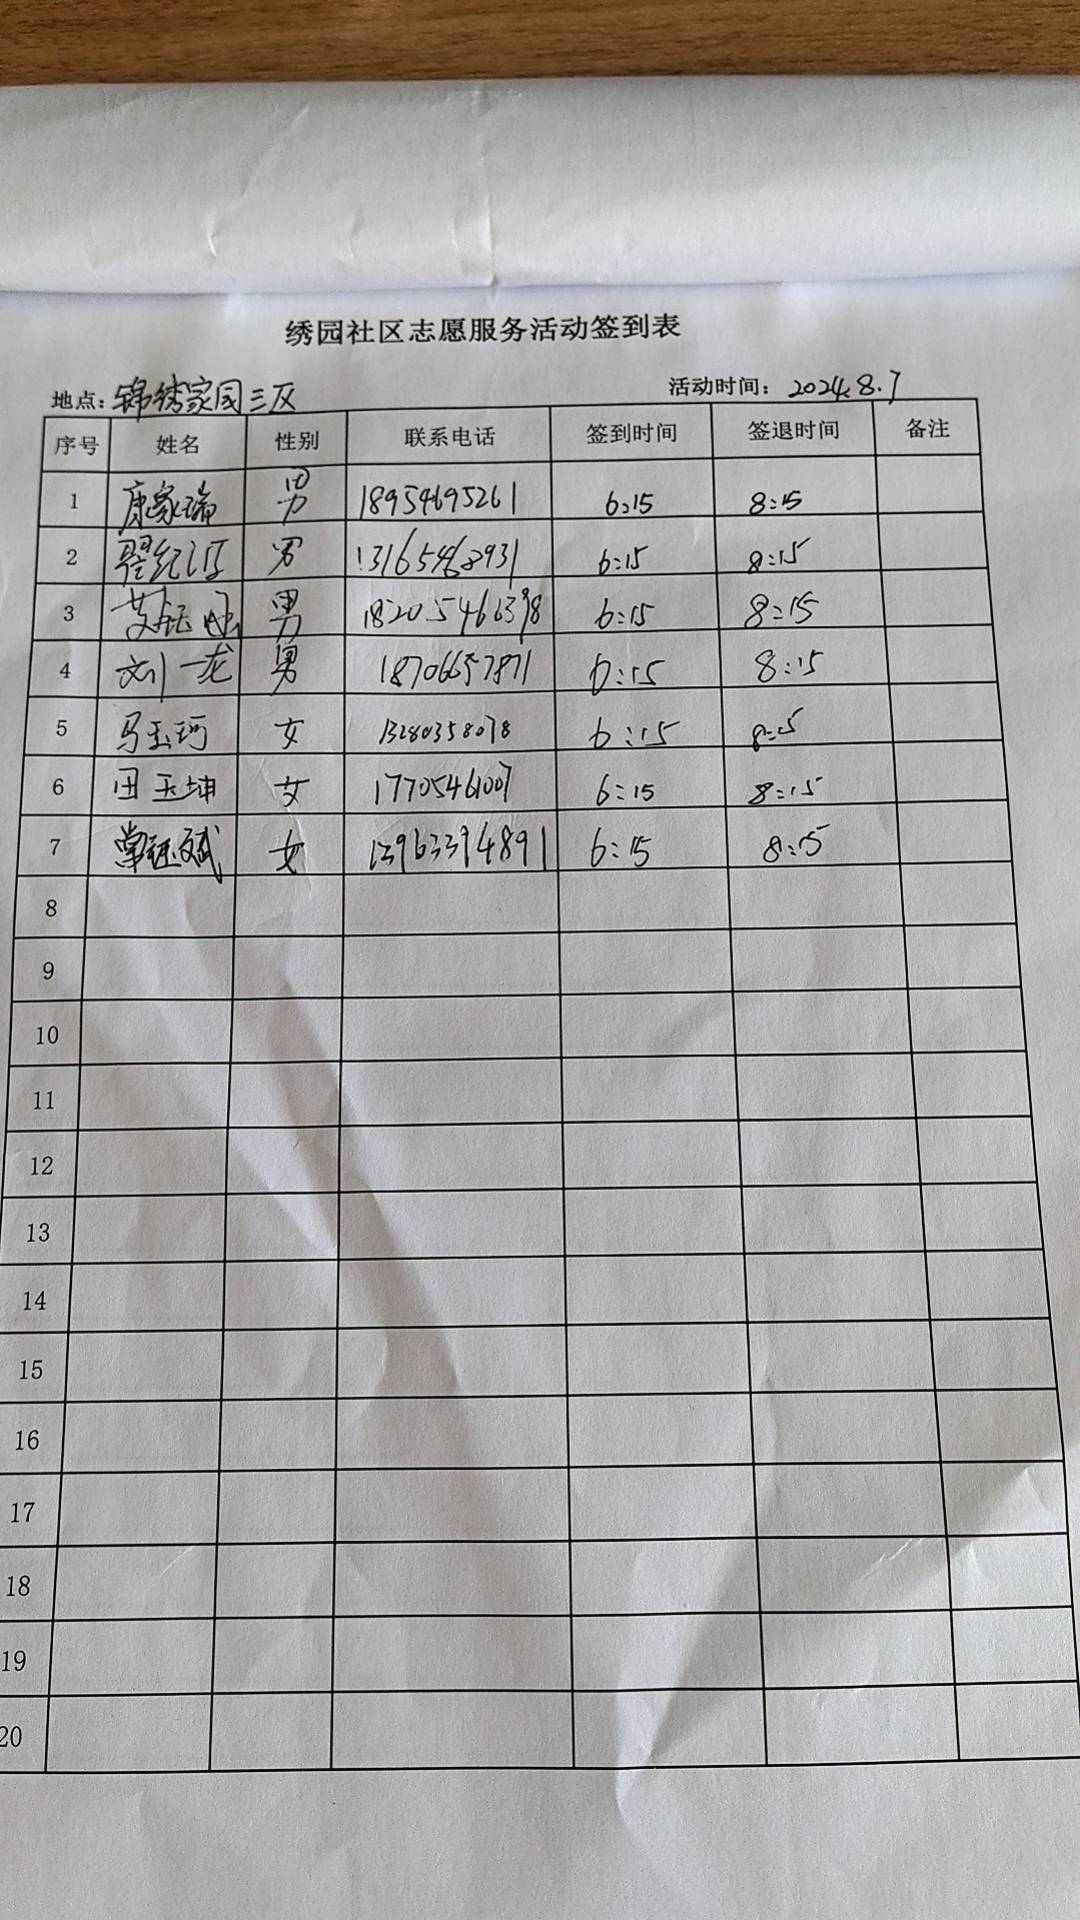 绣园社区志愿服务活动签到表
地点：锦绣家园三区 活动时间：2024.8.7
序号 姓名 性别 联系电话 签到时间 签退时间 备注
1 康家瑞 男 18954695261 6:15 8:15
2 男 13165468931 6:15 8:15
3 男 18205466398 6:15 8:15
4 刘一龙 男 18706657871 6:15 8:15
5 马玉珂 女 13280358078 6:15 8:15
6 田玉坤 女 17705461007 6:15 8:15
7 常钰斌 女 13963394891 6:15 8:15
8
9
10
11
12
13
14
15
16
17
18
19
20